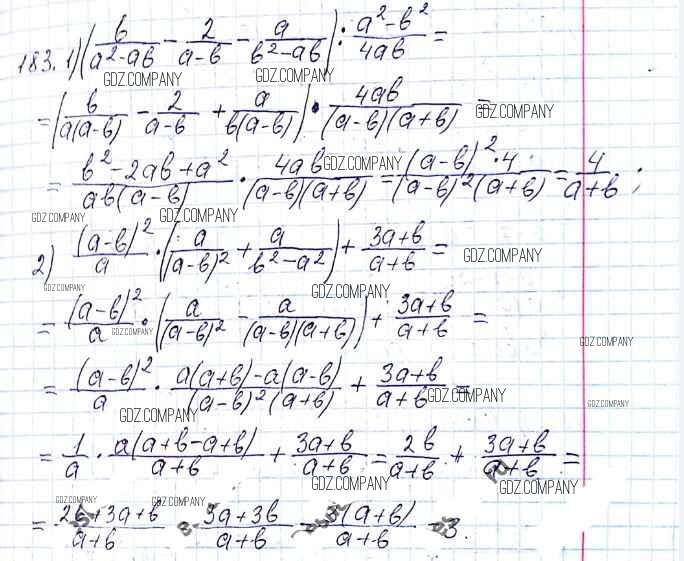 183. 1) (b/(a²-ab) - 2/(a-b) - a/(b²-ab)) : (a²-b²)/(4ab) =
GDZ.COMPANY GDZ.COMPANY
= (b/(a(a-b)) - 2/(a-b) + a/(b(a-b))) · 4ab/((a-b)(a+b)) =
= (b²-2ab+a²)/(ab(a-b)) · 4ab/((a-b)(a+b)) = ((a-b)²·4)/((a-b)²(a+b)) = 4/(a+b) ;
GDZ.COMPANY
GDZ.COMPANY GDZ.COMPANY
2) (a-b)²/a · (a/(a-b)² + a/(b²-a²)) + (3a+b)/(a+b) =
GDZ.COMPANY
GDZ.COMPANY GDZ.COMPANY
= (a-b)²/a · (a/(a-b)² - a/((a-b)(a+b))) + (3a+b)/(a+b) =
GDZ.COMPANY GDZ.COMPANY
= (a-b)²/a · (a(a+b)-a(a-b))/((a-b)²(a+b)) + (3a+b)/(a+b) =
GDZ.COMPANY GDZ.COMPANY GDZ.COMPANY
= 1/a · a(a+b-a+b)/(a+b) + (3a+b)/(a+b) = 2b/(a+b) + (3a+b)/(a+b) =
GDZ.COMPANY GDZ.COMPANY
GDZ.COMPANY GDZ.COMPANY
= (2b+3a+b)/(a+b) = (3a+3b)/(a+b) = 3(a+b)/(a+b) = 3.